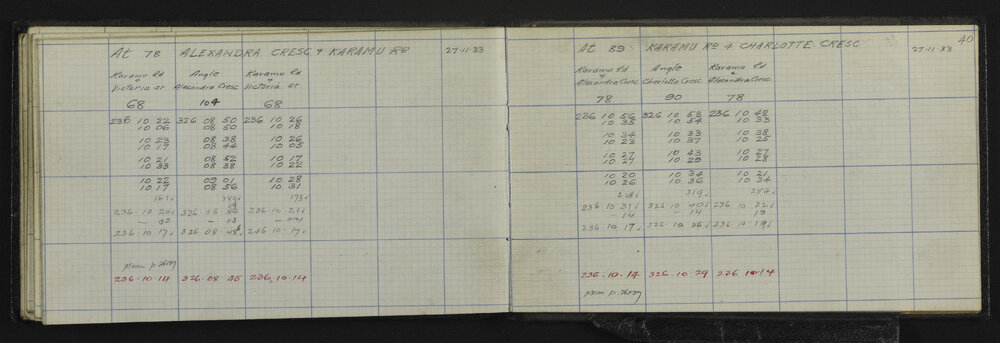 At 78 ALEXANDRA CRESC & KARAMU RD 27·11·33
Karamu Rd Angle Karamu Rd
& &
Victoria st Alexandra Cresc Victoria st
68 104 68
236 10 22 326 08 50 236 10 26
10 06 08 50 10 18
10 23 08 38 10 26
10 17 08 44 10 05
10 21 08 52 10 17
10 33 08 38 10 22
10 22 09 01 10 28
10 17 08 56 10 31
161√ 173√
236·10·20√ 326·08·50 236·10·21√
236·10·17√ 326·08· 236·10·17√
Mean p.
236·10·14 326·08 45 236·10·14
40
At 89 KARAMU RD & CHARLOTTE CRESC 27·11·33
Karamu Rd Angle Karamu Rd
& &
Alexandra Cresc Charlotte Cresc Alexandra Cresc
78 90 78
236 10 56 326 10 53 236 10 48
10 35 10 54 10 33
10 34 10 33 10 38
10 23 10 37 10 25
10 27 10 43 10 27
10 27 10 29 10 28
10 20 10 34 10 21
10 26 10 36 10 34
319√ 254√
236 10 31√ 326 10 40√ 236 10 32√
- 14 - 14 13
236 10 17√ 326·10 26√ 236·10·19√
236·10·14 326·10·29 236 10 14
Mean p.